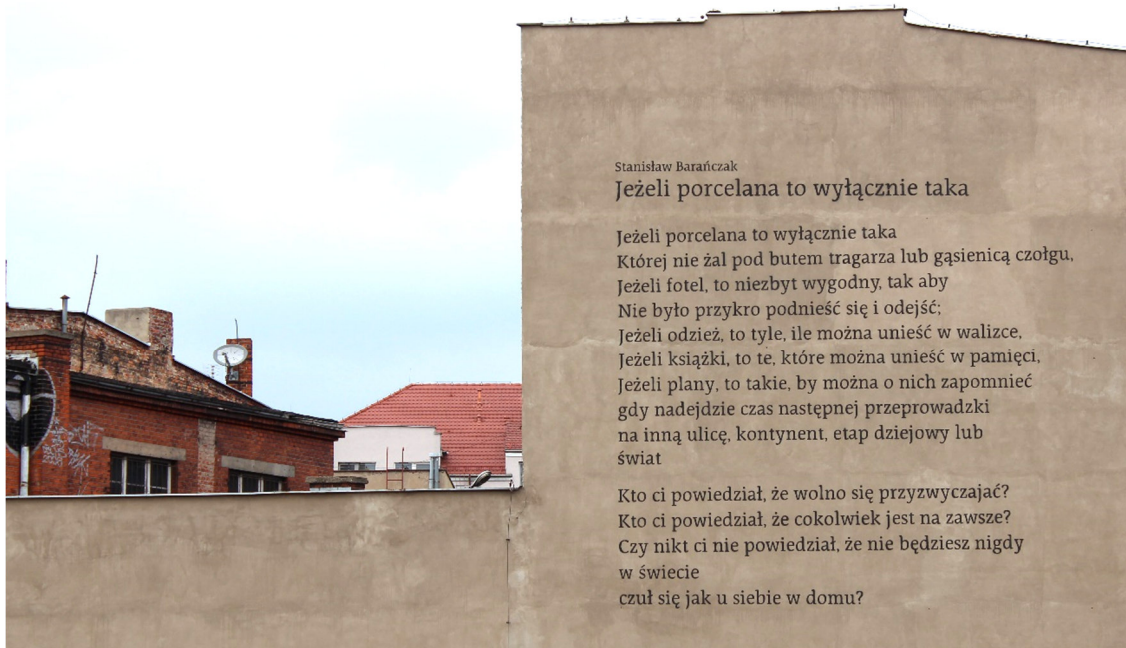 Stanisław Barańczak
Jeżeli porcelana to wyłącznie taka
Jeżeli porcelana to wyłącznie taka
Której nie żal pod butem tragarza lub gąsienicą czołgu,
Jeżeli fotel, to niezbyt wygodny, tak aby
Nie było przykro podnieść się i odejść;
Jeżeli odzież, to tyle, ile można unieść w walizce,
Jeżeli książki, to te, które można unieść w pamięci,
Jeżeli plany, to takie, by można o nich zapomnieć
gdy nadejdzie czas następnej przeprowadzki
na inną ulicę, kontynent, etap dziejowy lub
świat
Kto ci powiedział, że wolno się przyzwyczajać?
Kto ci powiedział, że cokolwiek jest na zawsze?
Czy nikt ci nie powiedział, że nie będziesz nigdy
w świecie
czuł się jak u siebie w domu?